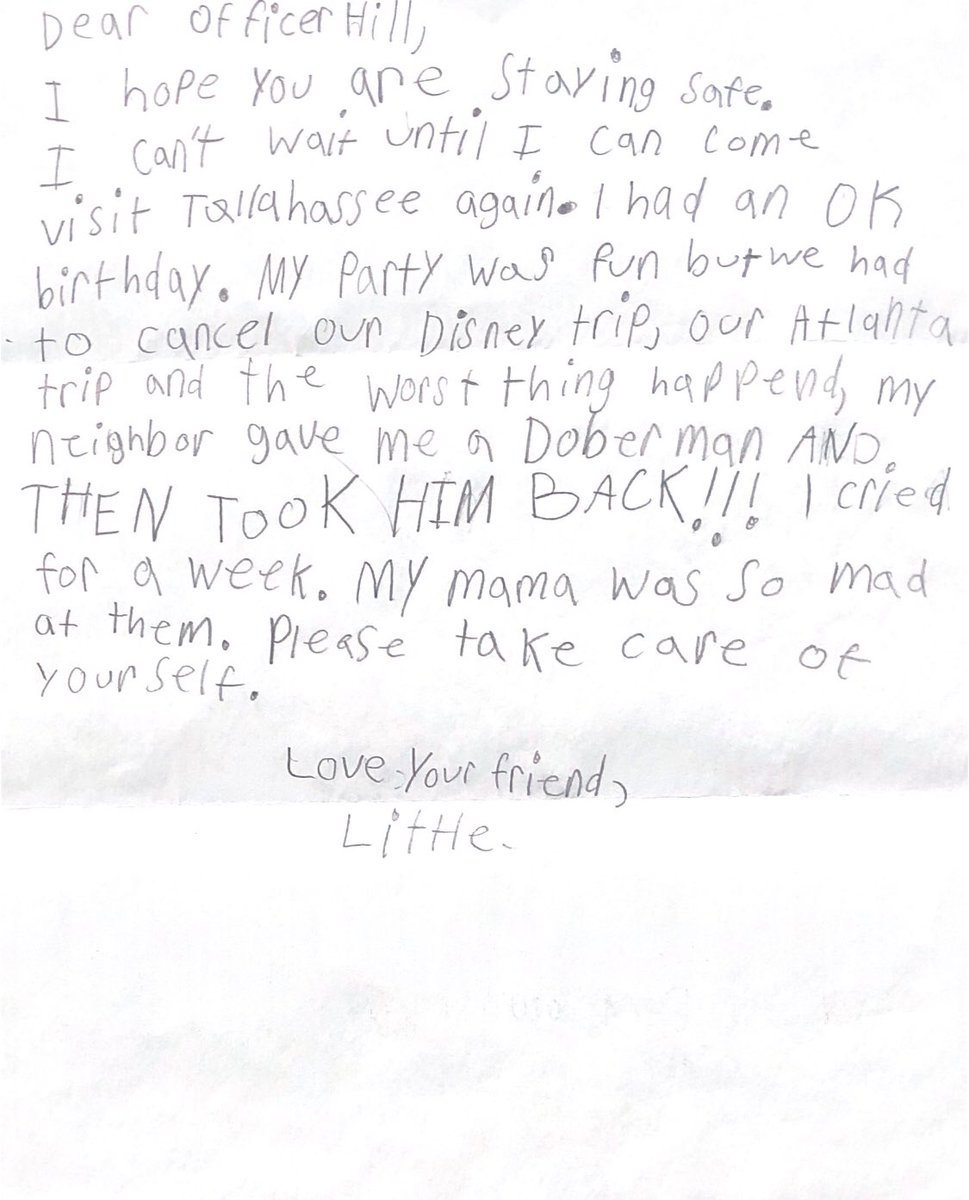 Dear Officer Hill,
I hope you are staying safe.
I can't wait until I can come
visit Tallahassee again. I had an OK
birthday. My Party was fun but we had
to cancel our Disney trip, our Atlanta
trip and the worst thing happend, my
neighbor gave me a Doberman AND
THEN TOOK HIM BACK!!! I cried
for a week. My mama was so mad
at them. Please take care of
yourself.
Love Your friend,
Little.